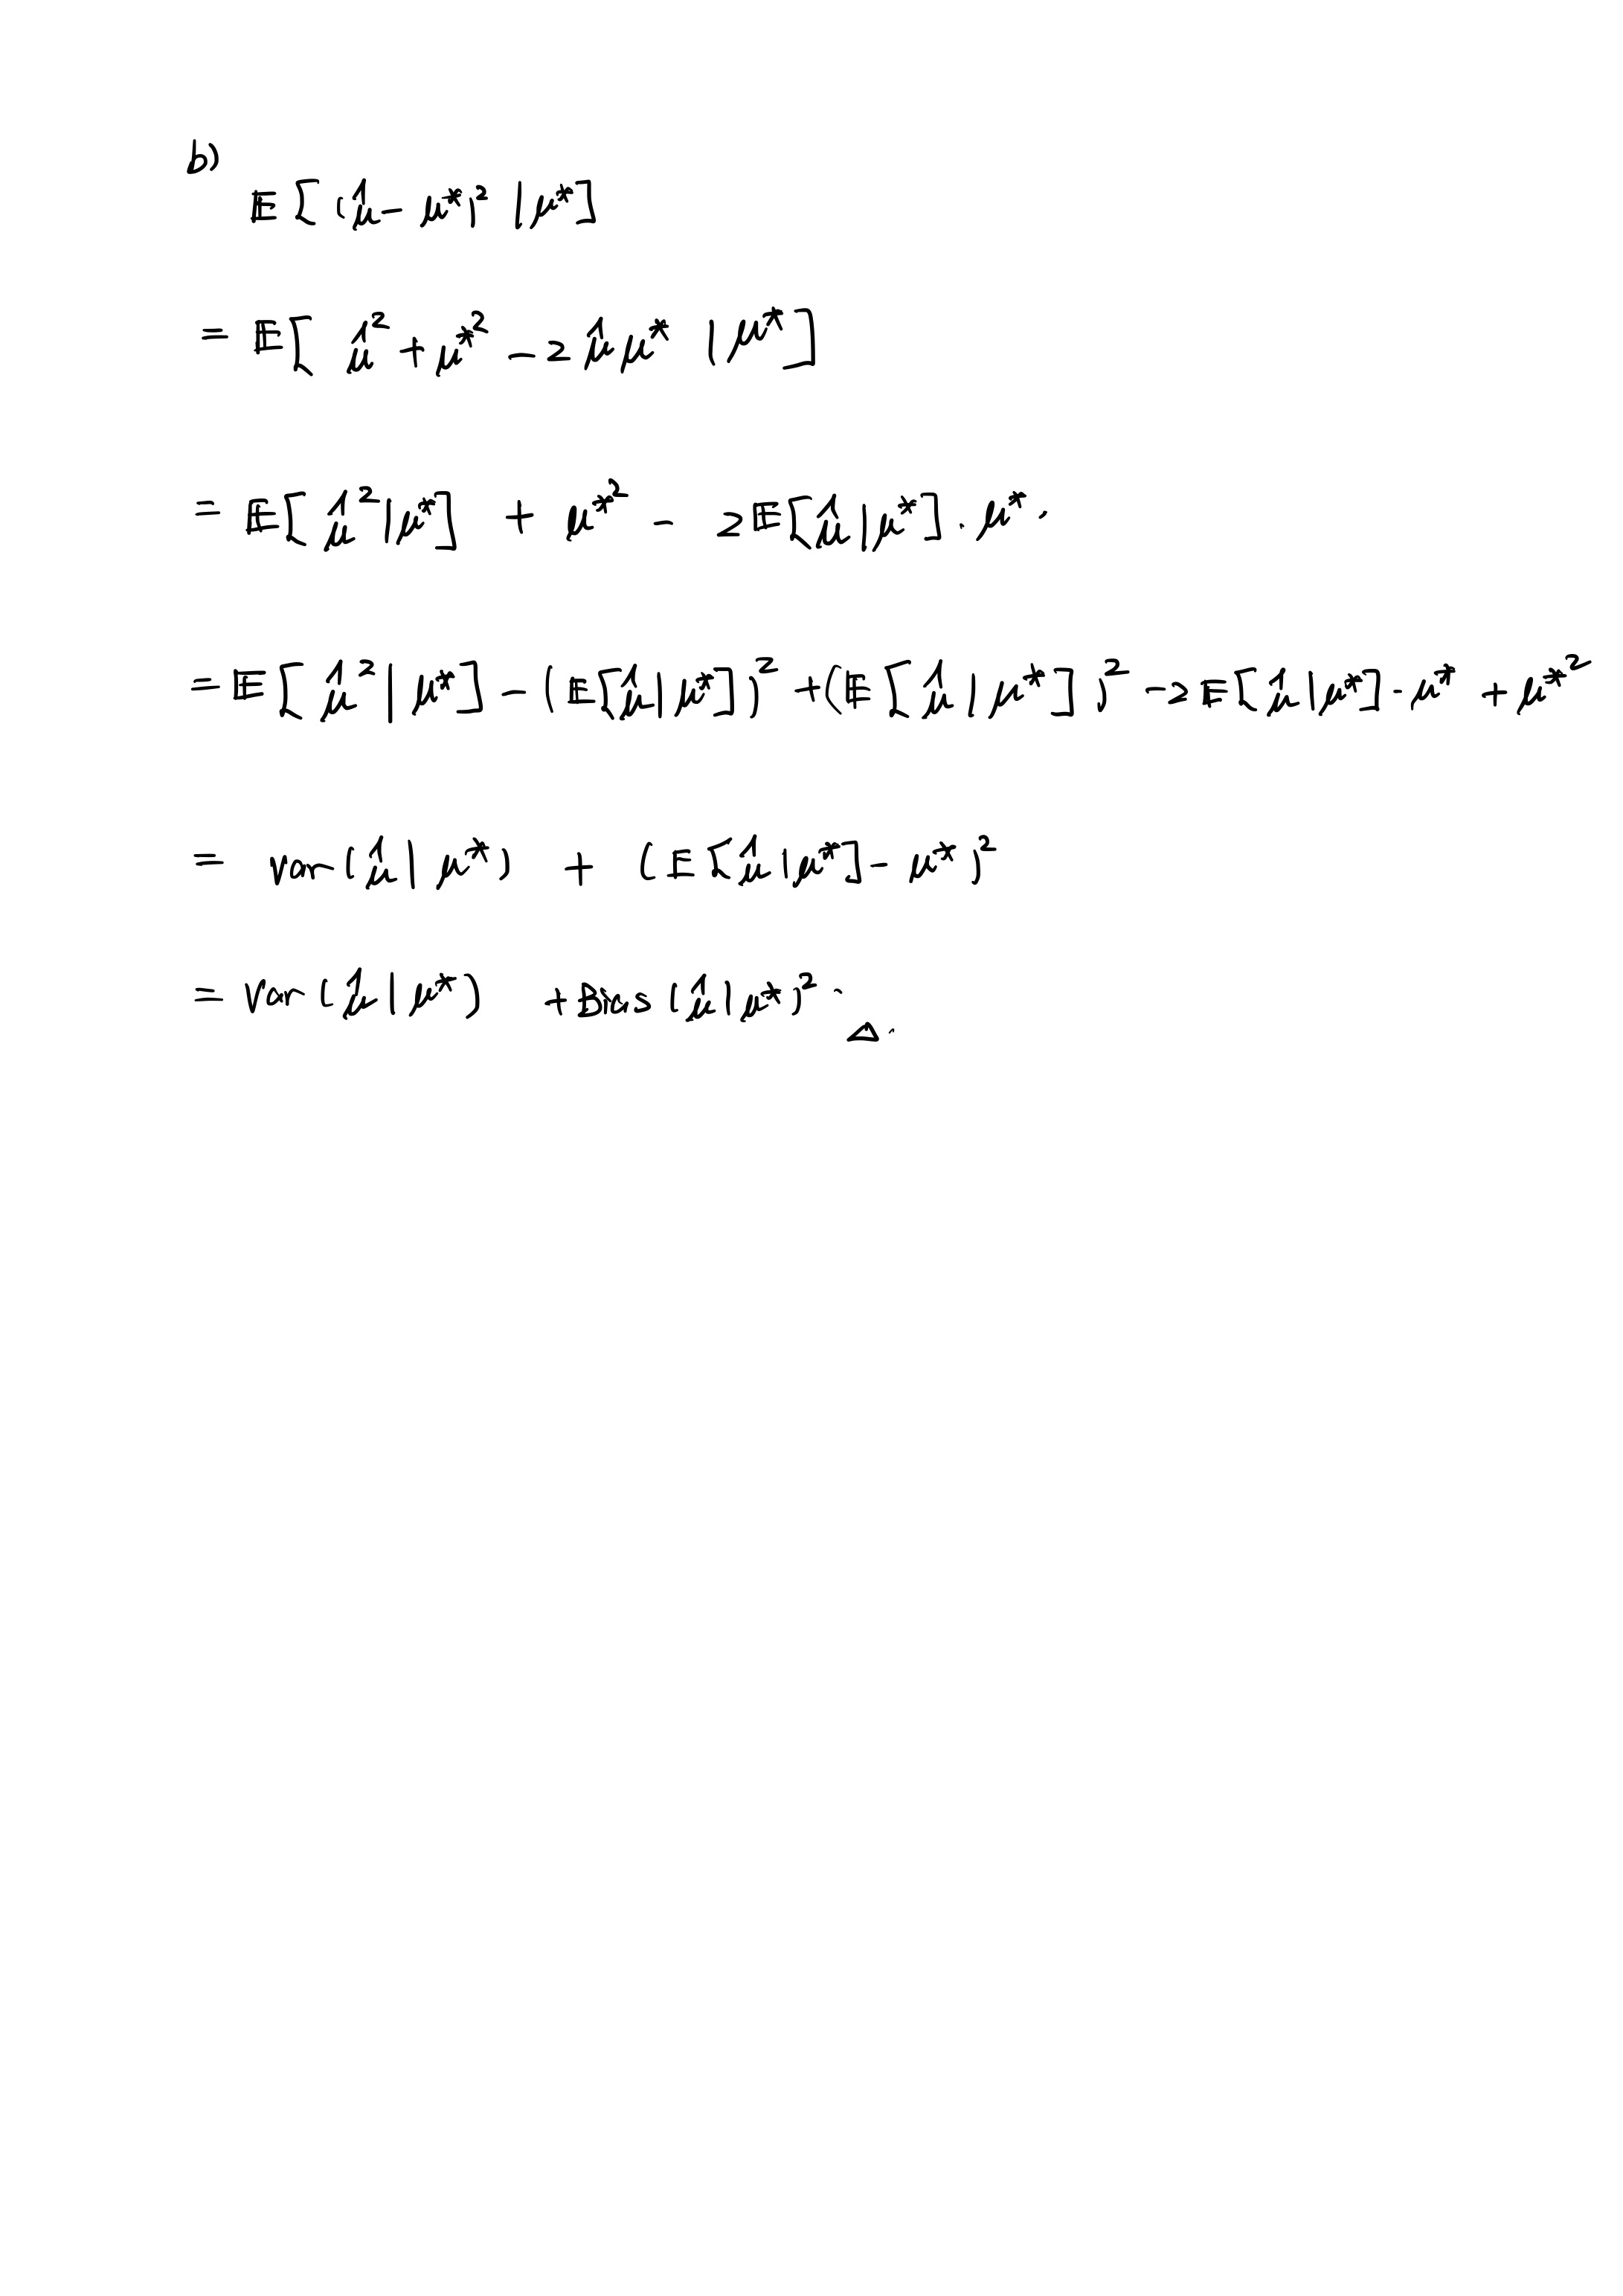 b)
𝔼[(μ̂ - μ*)² | μ*]
= 𝔼[ μ̂² + μ*² - 2 μ̂ μ* | μ*]
= 𝔼[μ̂² | μ*] + μ*² - 2 𝔼[μ̂ | μ*] · μ* .
= 𝔼[μ̂² | μ*] - (𝔼[μ̂ | μ*])² + (𝔼[μ̂ | μ*])² - 2 𝔼[μ̂ | μ*] - μ* + μ*²
= Var(μ̂ | μ*) + (𝔼[μ̂ | μ*] - μ*)²
= Var(μ̂ | μ*) + Bias(μ̂ | μ*)² .
△.